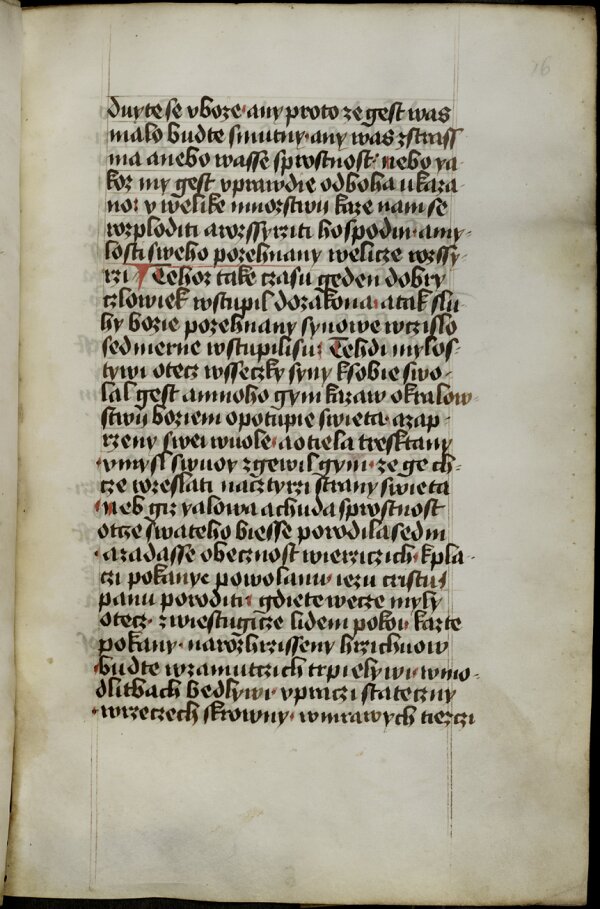 16
duyte se v boze · any proto ze gest was
malo budte smutny · any was zstrass
ma anebo wasse sprostnost · nebo ya
koz my gest vprawdie od boha ukaza
no · v welike mnozstwu kaze nam se
rozploditi a rozssyrziti hospodin · a my
losti sweho pozehnany welicze rozssy
rzi Tehoz take czasu geden dobry
czlowiek wstupil do zakona · a tak slu
hy bozie pozehnany synowe w czislo
sedmerne wstupili su · Tehdi mylos
tywi otecz wsseczky syny k sobie swo
lal gest a mnoho gym kazaw o kralow
stwu boziem o potupie swieta · a zap
rzeny swei wuole · a o tiela tresktany
vmysl swuoy zgewil gym · ze ge ch
cze rozeslati na cztyrzi strany swieta
neb giz yalowa a chuda sprostnost
otcze swateho biesse porodila sedm
a zadasse obecznost wierziczich · k pla
czi pokanye powolanu · iezu cristu
panu poroditi · gdiete wecze myly
otecz · zwiestugicze lidem pokoi · kazte
pokany · na rozhrzisseny hrzichuow
budte w zamutczich trpielywi · w mo
dlitbach bedlywi · v praczi stateczny
w rzeczech skrowny · w mrawych tiezczi